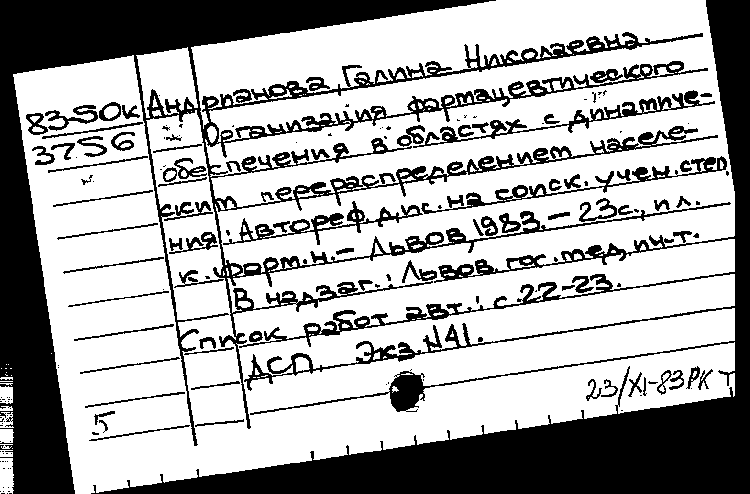 83-50к Андрианова, Галина Николаевна.
3756 Организация фармацевтического
обеспечения в областях с динамиче-
ским перераспределением населе-
ния: Автореф. дис. на соиск. учен. степ.
к. фарм. н. – Львов, 1983. – 23с., ил.
В надзаг.: Львов. гос. мед. ин-т.
Список работ авт.: с. 22-23.
ДСП. Экз. N41.
23/XI-83 РК Т
5